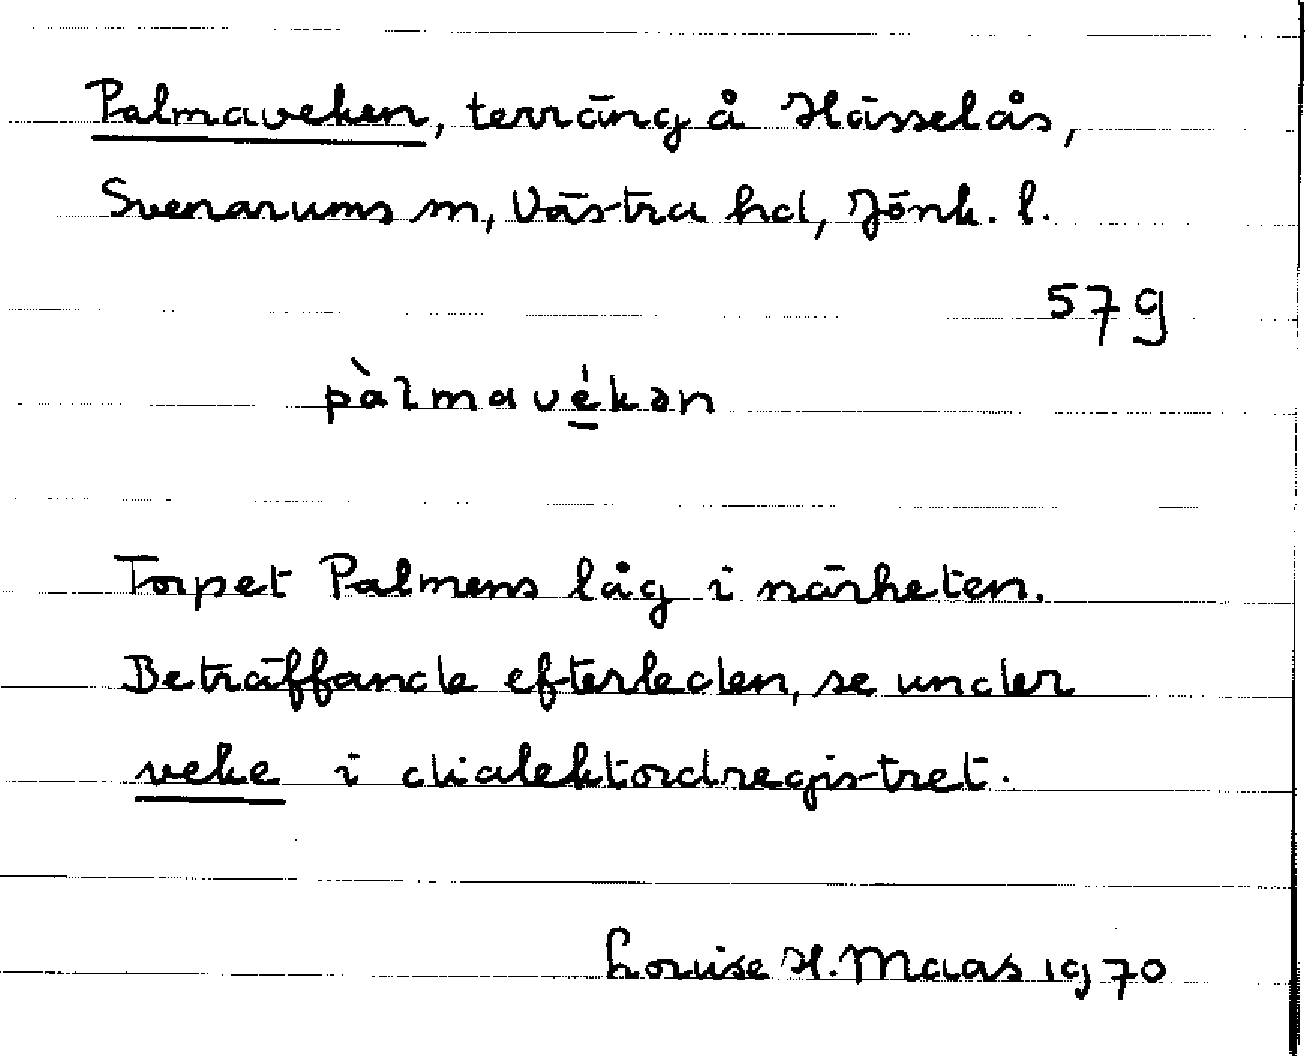 Palmaveken, terräng å Hässelås,
Svenarums sn, Västra hd, Jönk. l.
57g
pàlmavé̱kən
Torpet Palmens låg i närheten.
Beträffande efterleden, se under
veke i dialektordregistret.
Louise H. Maas 1970